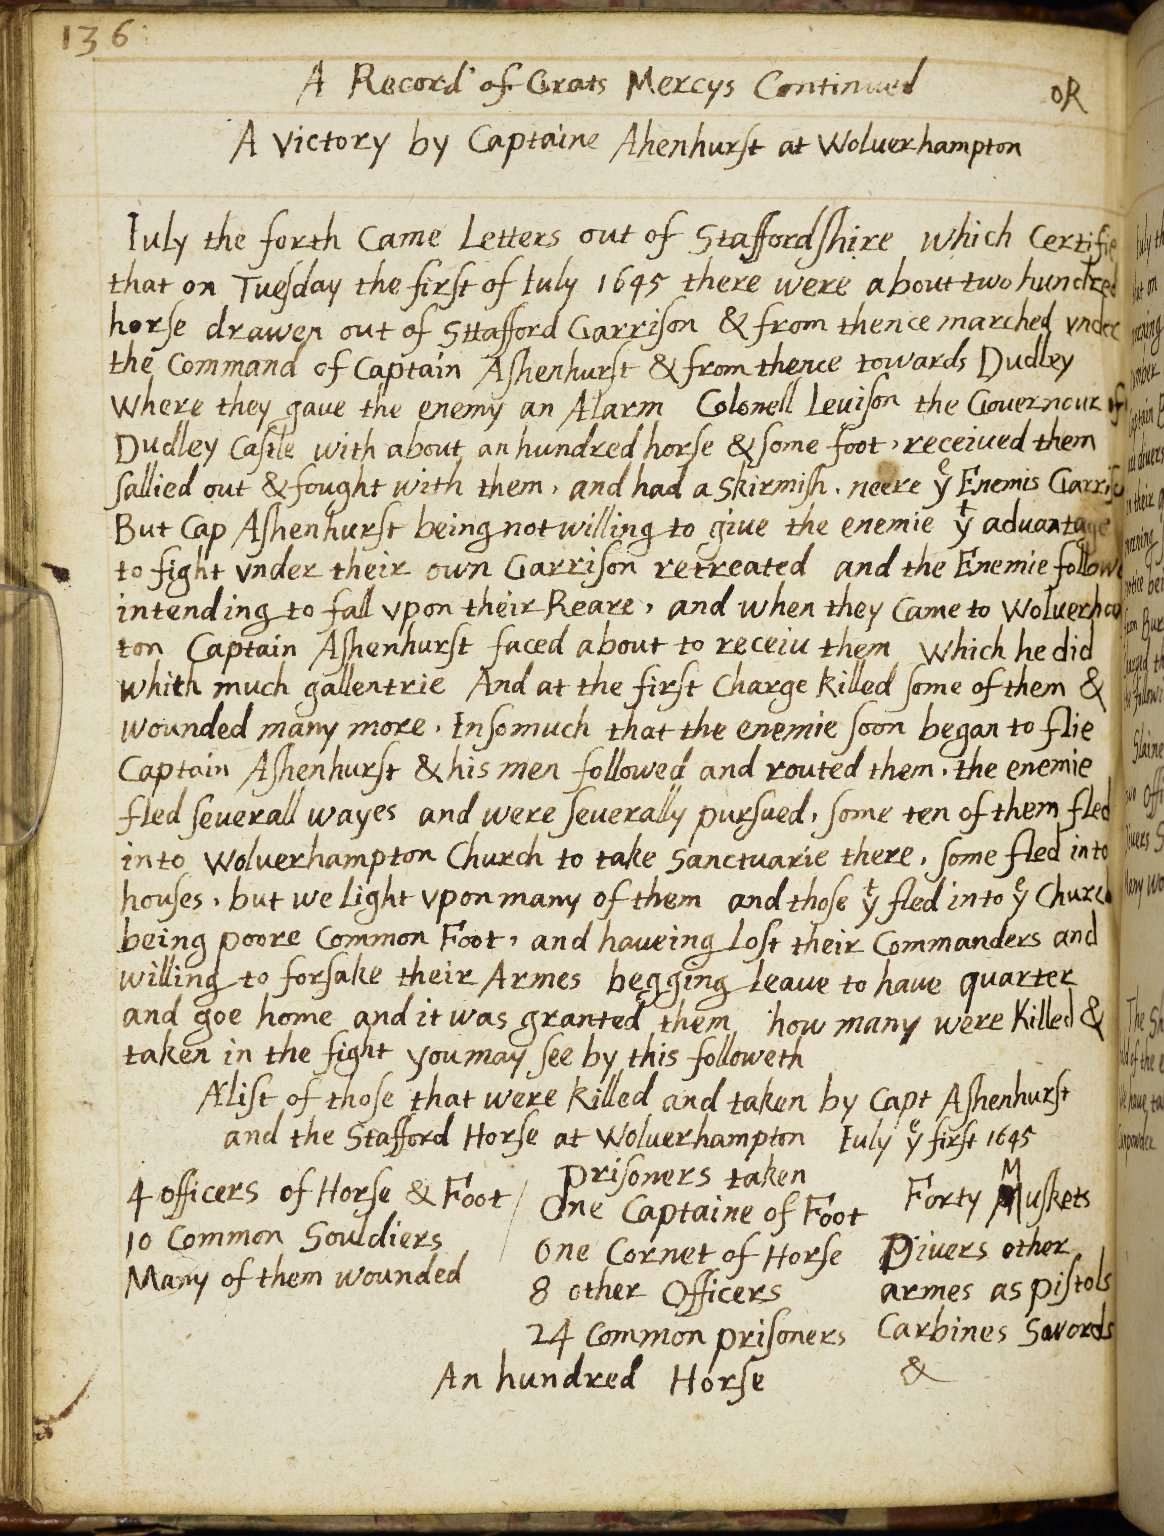 136
A Record of Grats Mercys Continued oR
A Victory by Captaine Ahenhurſt at Woluerhampton
Iuly the forth Came Letters out of Staffordſhire which Certifie
that on Tueſday the firſt of Iuly 1645 there were about two hundred
horſe drawen out of Sttafford Garriſon & from thence marched vnder
the Command of Captain Aſhenhurſt & from thence towards Dudley
Where they gaue the enemy an Alarm Colonell Leuiſon the Gouernour of
Dudley Caſtle with about an hundred horſe & ſome foot, receiued them
ſallied out & fought with them, and had a Skirmiſh, neere yᵉ Enemis Garriſ
But Cap Aſhenhurſt being not willing to giue the enemie yᵗ aduantage
to fight vnder their own Garriſon retreated and the Enemie follow
intending to fall vpon their Reare, and when they Came to Woluerha
ton Captain Aſhenhurſt faced about to receiu them Which he did
whith much gallentrie And at the firſt Charge killed ſome of them &
wounded many more, Inſomuch that the enemie ſoon began to flie
Captain Aſhenhurſt & his men followed and routed them, the enemie
fled ſeuerall wayes and were ſeuerally purſued, ſome ten of them fled
into Woluerhampton Church to take Sanctuarie there, ſome fled into
houſes, but we Light vpon many of them and thoſe yᵗ fled into yᵉ Church
being poore Common Foot, and haueing Loſt their Commanders and
willing to forſake their Armes begging Leaue to haue quarter
and goe home and it was granted them how many were Killed &
taken in the fight you may ſee by this followeth
A liſt of thoſe that were killed and taken by Capt Aſhenhurſt
and the Stafford Horſe at Woluerhampton Iuly yᵉ firſt 1645
4 officers of Horſe & Foot
10 Common Souldiers
Many of them wounded
Priſoners taken
One Captaine of Foot
One Cornet of Horſe
8 other Officers
24 Common priſoners
An hundred Horſe
Forty Muſkets
Diuers other
armes as piſtols
Carbines Swords
&